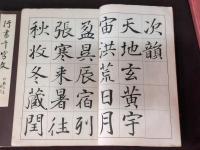 次韻
天地玄黃宇
宙洪荒日月
盈昃辰宿列
張寒來暑往
秋收冬藏閏
行書千字文